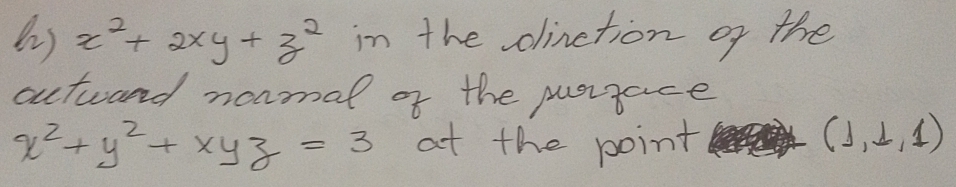 h) x² + 2xy + z² in the direction of the
outward normal of the surface
x² + y² + xyz = 3 at the point (1,1,1)